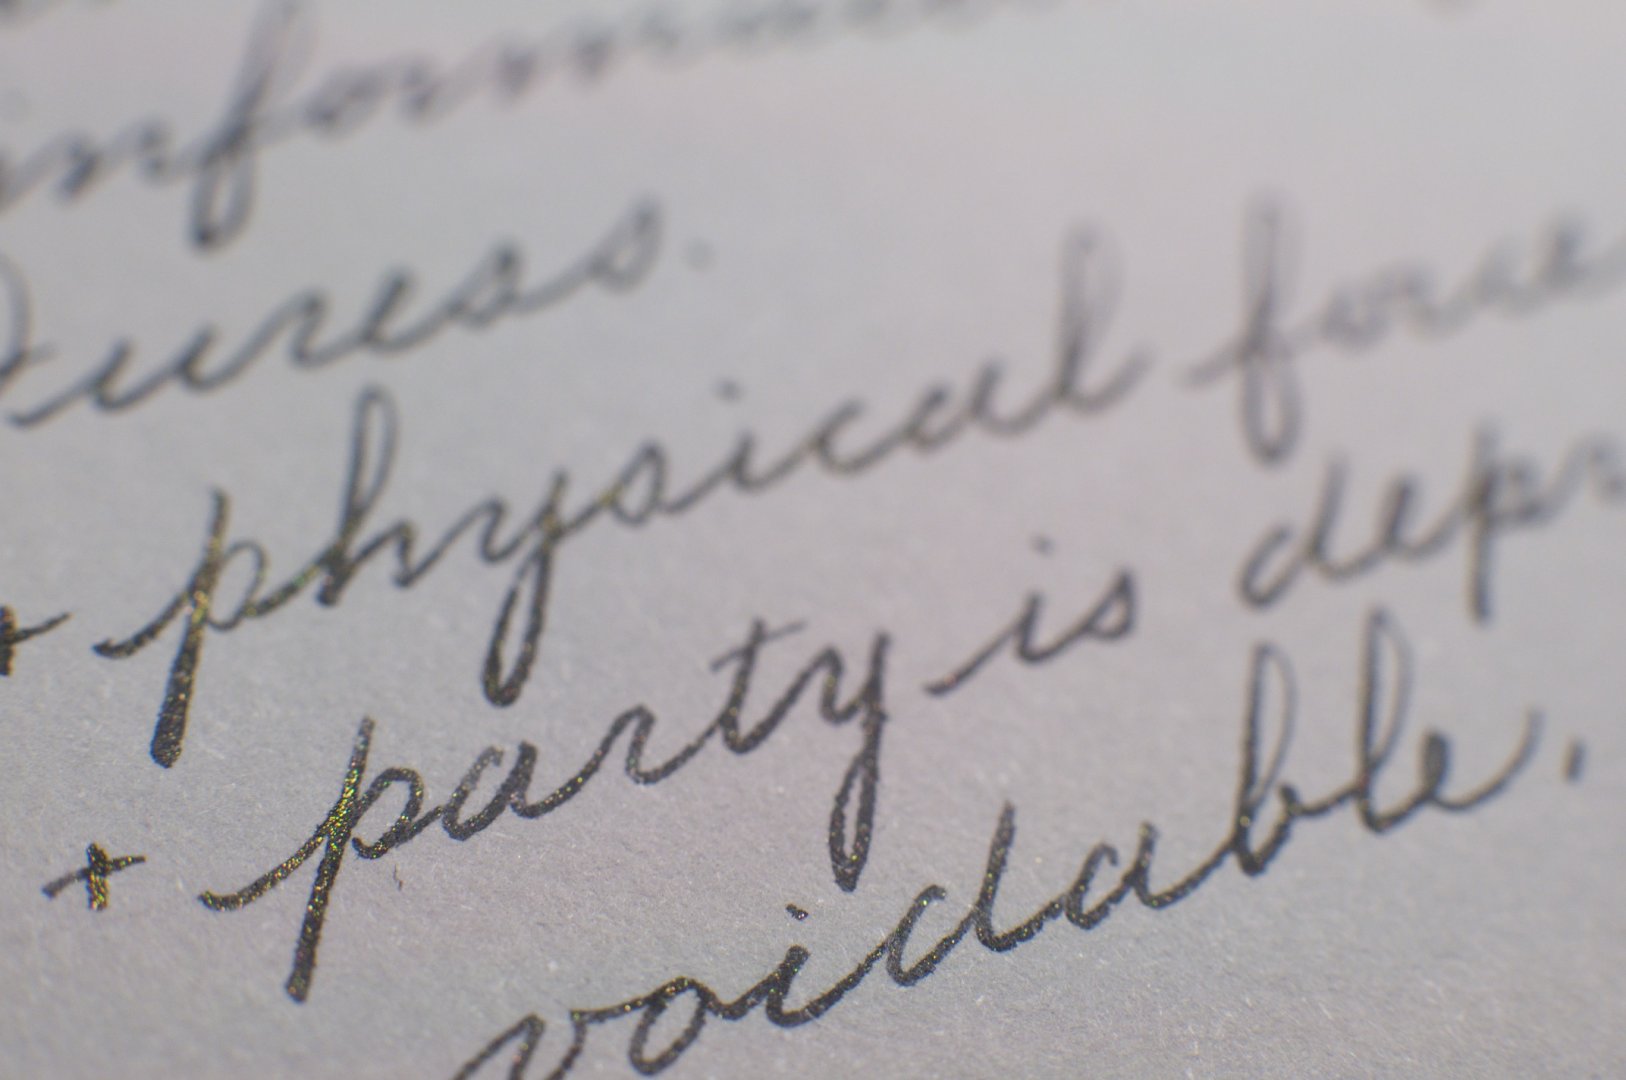 Duress.
+ physical force
+ party is depr
voidable.